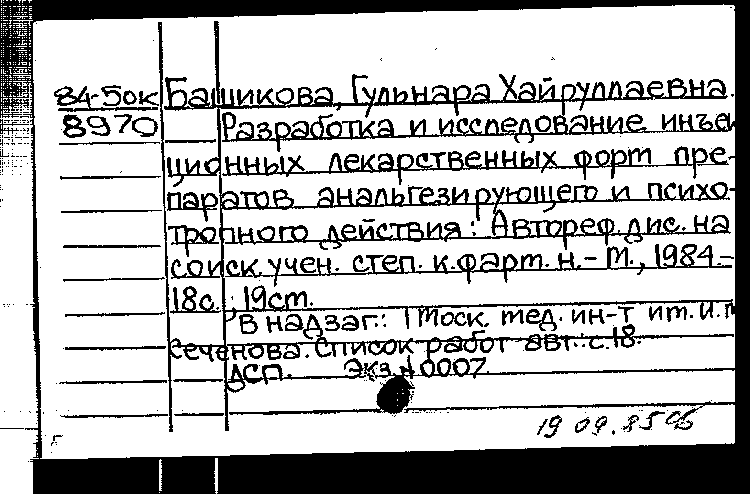 84-5ок Башикова, Гульнара Хайруллаевна.
8970 Разработка и исследование инъек
ционных лекарственных форм пре-
паратов анальгезирующего и психо-
тропного действия: Автореф. дис. на
соиск. учен. степ. к. фарм. н. - М., 1984.-
18с.; 19см.
В надзаг.: 1 Моск. мед. ин-т им. И. М
Сеченова. Список работ авт.: с.18.
ДСП. Экз. № 0007
19 09. 85